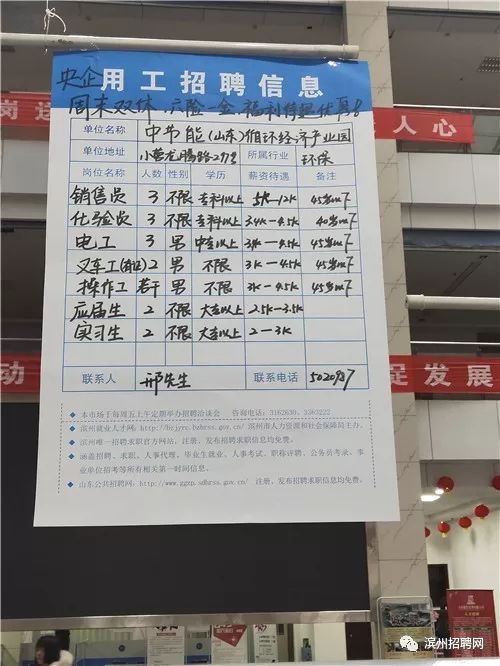 央企用工招聘信息
周末双休 六险一金 福利待遇优厚!
单位名称 中节能(山东)循环经济产业园
单位地址 小营龙腾路279号 所属行业 环保
岗位名称 人数 性别 学历 薪资待遇 备注
销售员 3 不限 专科以上 5K-12K 45岁以下
化验员 3 不限 专科以上 3.4K-4.5K 40岁以下
电工 3 男 中专以上 3.4K-4.5K 45岁以下
叉车工 2 男 不限 3K-4.5K 45岁以下
操作工 若干 男 不限 3K-4.5K 45岁以下
应届生 2 不限 大专以上 2.5K-3.5K
实习生 2 不限 大专以上 2-3K
联系人 邢先生 联系电话
本市场于每周五上午定期举办招聘洽谈会 咨询电话:3162630、3363222
滨州就业人才网:http://bzjyrc.bzhrss.gov.cn/ 滨州市人力资源和社会保障局主办。
滨州唯一招聘求职官方网站,注册、发布招聘求职信息均免费。
涵盖招聘、求职、人事代理、毕业生就业、人事考试、职称评聘、公务员考录、事
业单位招考等所有相关第一时间信息。
山东公共招聘网:http://www.ggzp.sdhrss.gov.cn/ 注册、发布招聘求职信息均免费。
人心
动
促发展
滨州招聘网